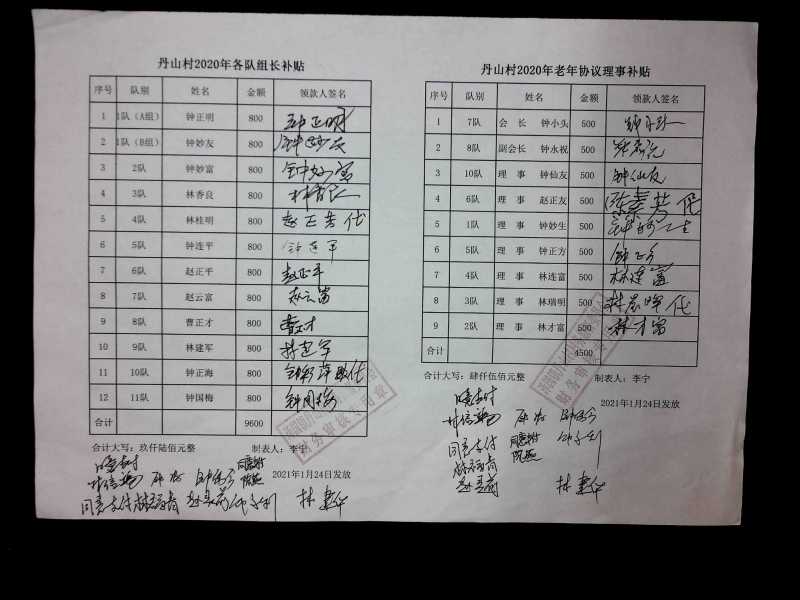 丹山村2020年各队组长补贴
序号 队别 姓名 金额 领款人签名
1 1队（A组） 钟正明 800 钟正明
2 1队（B组） 钟妙友 800 钟妙友
3 2队 钟妙富 800 钟妙富
4 3队 林香良 800 林香良
5 4队 林桂明 800 赵正芳代
6 5队 钟连平 800 钟连平
7 6队 赵正平 800 赵正平
8 7队 赵云富 800 赵云富
9 8队 曹正才 800
10 9队 林建军 800 林建军
11 10队 钟正海 800
12 11队 钟国梅 800 钟国梅
合计 9600
合计大写：玖仟陆佰元整 制表人：李宁
2021年1月24日发放
同意支付
丹山村2020年老年协议理事补贴
序号 队别 姓名 金额 领款人签名
1 7队 会长 钟小头 500
2 8队 副会长 钟永祝 500
3 10队 理事 钟仙友 500 钟仙友
4 6队 理事 赵正友 500 陈素芳代
5 1队 理事 钟妙生 500 钟妙生
6 5队 理事 钟正方 500 钟正方
7 4队 理事 林连富 500 林连富
8 3队 理事 林瑞明 500 林晨晖代
9 2队 理事 林才富 500 林才富
合计 4500
合计大写：肆仟伍佰元整 制表人：李宁
2021年1月24日发放
同意支付